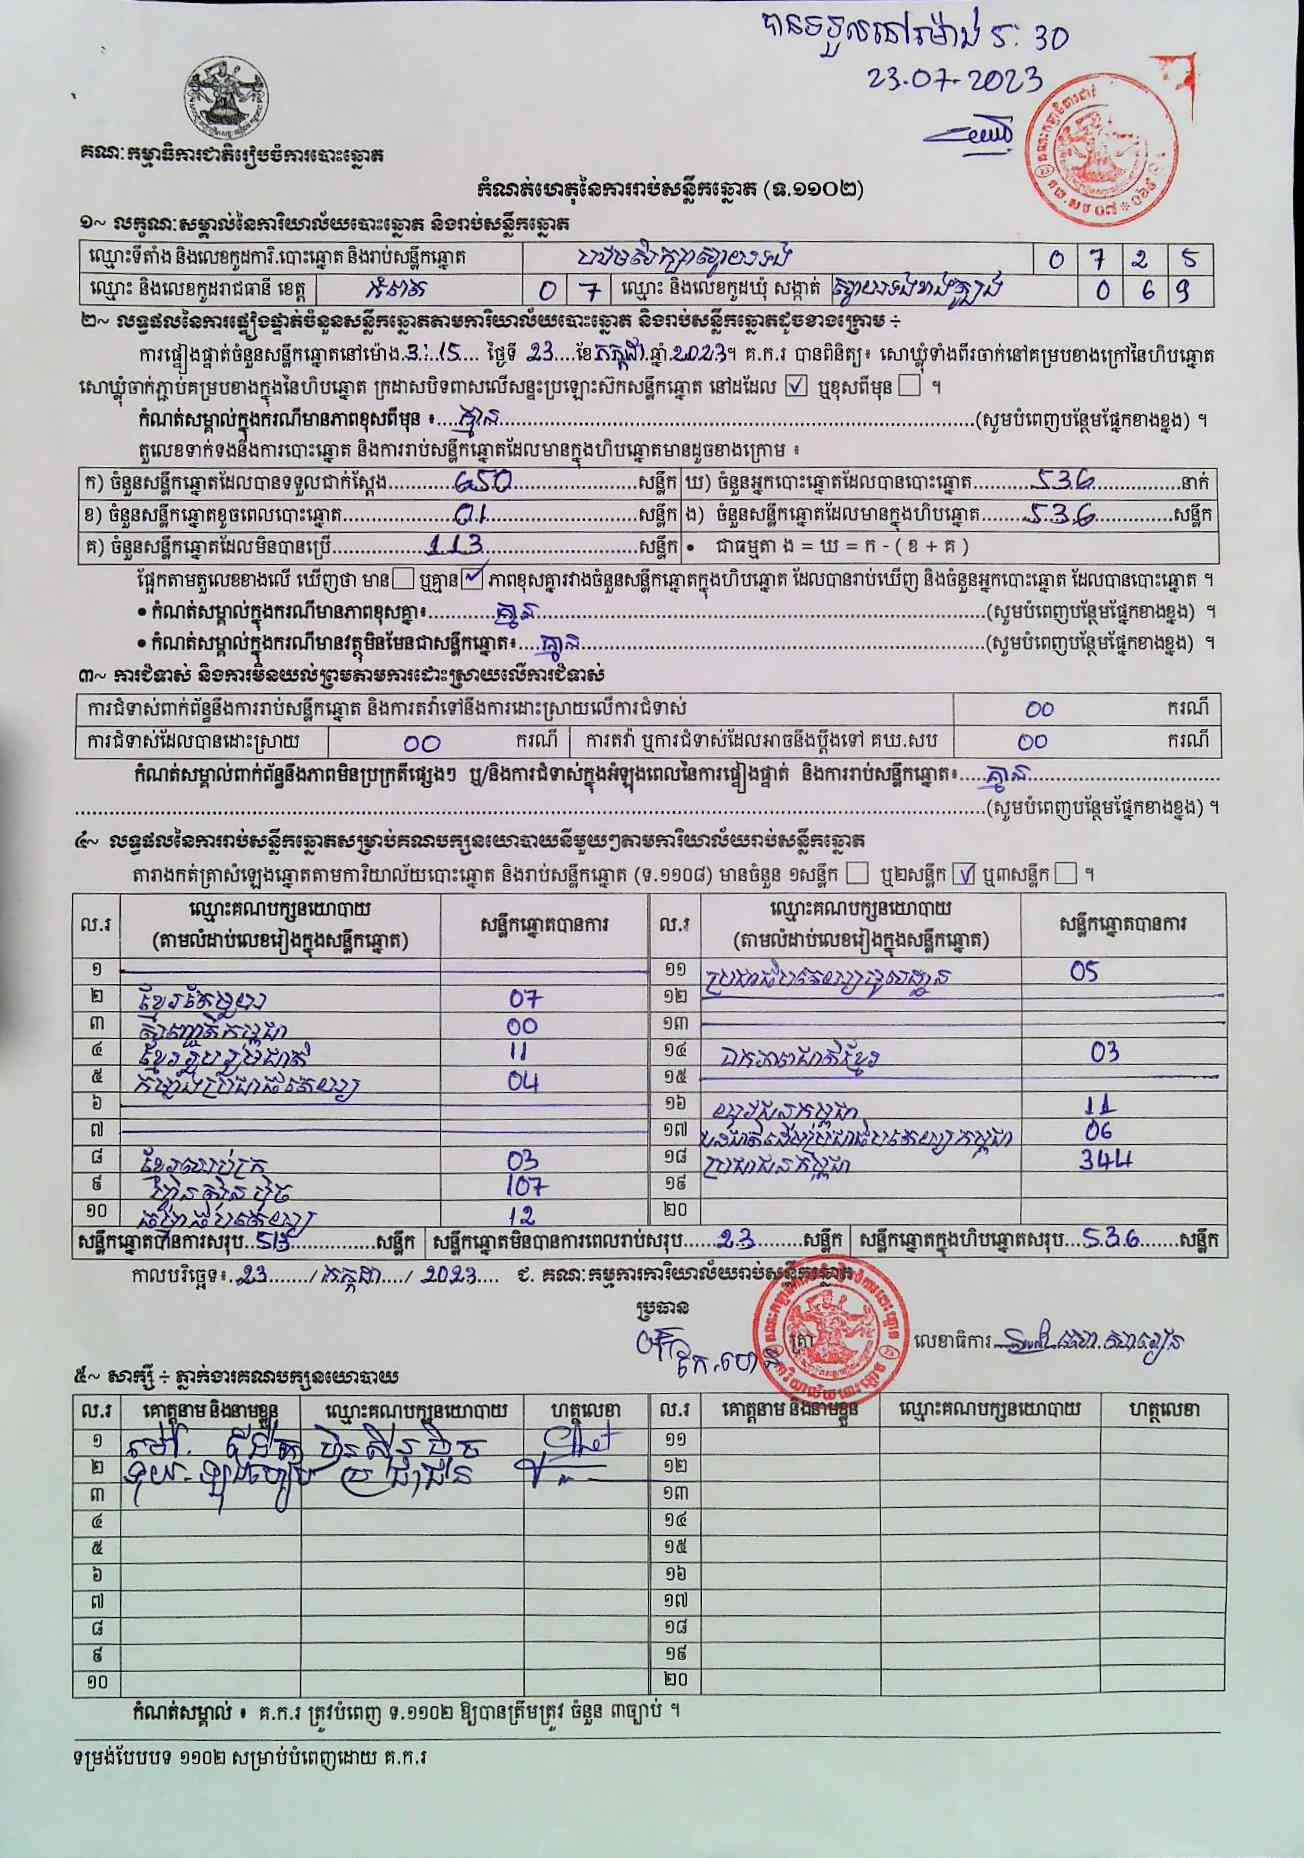 បានទទួលនៅម៉ោង 5: 30
23.07.2023
គណៈកម្មាធិការជាតិរៀបចំការបោះឆ្នោត
កំណត់ហេតុនៃការរាប់សន្លឹកឆ្នោត (ទ.១១០២)
១~ លក្ខណៈសម្គាល់នៃការិយាល័យបោះឆ្នោត និងរាប់សន្លឹកឆ្នោត
ឈ្មោះទីតាំង និងលេខកូដការិ.បោះឆ្នោត និងរាប់សន្លឹកឆ្នោត បឋមសិក្សាស្វាយទង 0 7 2 5
ឈ្មោះ និងលេខកូដរាជធានី ខេត្ត កំពត 0 7 ឈ្មោះ និងលេខកូដឃុំ សង្កាត់ ស្វាយទងខាងត្បូង 0 6 9
២~ លទ្ធផលនៃការផ្ទៀងផ្ទាត់ចំនួនសន្លឹកឆ្នោតតាមការិយាល័យបោះឆ្នោត និងរាប់សន្លឹកឆ្នោតដូចខាងក្រោម ÷
ការផ្ទៀងផ្ទាត់ចំនួនសន្លឹកឆ្នោតនៅម៉ោង 3:15 ថ្ងៃទី 23 ខែ កក្កដា ឆ្នាំ 2023។ គ.ក.រ បានពិនិត្យ៖ សោឃ្លុំទាំងពីរចាក់នៅគម្របខាងក្រៅនៃហិបឆ្នោត
សោឃ្លុំចាក់ភ្ជាប់គម្របខាងក្នុងនៃហិបឆ្នោត ក្រដាសបិទពាសលើសន្ទះប្រឡោះស៊កសន្លឹកឆ្នោត នៅដដែល ☑ ឬខុសពីមុន ☐ ។
កំណត់សម្គាល់ក្នុងករណីមានភាពខុសពីមុន ៖ គ្មាន (សូមបំពេញបន្ថែមផ្នែកខាងខ្នង) ។
តួលេខទាក់ទងនឹងការបោះឆ្នោត និងការរាប់សន្លឹកឆ្នោតដែលមានក្នុងហិបឆ្នោតមានដូចខាងក្រោម ៖
ក) ចំនួនសន្លឹកឆ្នោតដែលបានទទួលជាក់ស្តែង 650 សន្លឹក ឃ) ចំនួនអ្នកបោះឆ្នោតដែលបានបោះឆ្នោត 536 នាក់
ខ) ចំនួនសន្លឹកឆ្នោតខូចពេលបោះឆ្នោត 01 សន្លឹក ង) ចំនួនសន្លឹកឆ្នោតដែលមានក្នុងហិបឆ្នោត 536 សន្លឹក
គ) ចំនួនសន្លឹកឆ្នោតដែលមិនបានប្រើ 113 សន្លឹក • ជាធម្មតា ង = ឃ = ក - ( ខ + គ )
ផ្អែកតាមតួលេខខាងលើ ឃើញថា មាន ☐ ឬគ្មាន ☑ ភាពខុសគ្នារវាងចំនួនសន្លឹកឆ្នោតក្នុងហិបឆ្នោត ដែលបានរាប់ឃើញ និងចំនួនអ្នកបោះឆ្នោត ដែលបានបោះឆ្នោត ។
• កំណត់សម្គាល់ក្នុងករណីមានភាពខុសគ្នា៖ គ្មាន (សូមបំពេញបន្ថែមផ្នែកខាងខ្នង) ។
• កំណត់សម្គាល់ក្នុងករណីមានវត្ថុមិនមែនជាសន្លឹកឆ្នោត៖ គ្មាន (សូមបំពេញបន្ថែមផ្នែកខាងខ្នង) ។
៣~ ការជំទាស់ និងការមិនយល់ព្រមតាមការដោះស្រាយលើការជំទាស់
ការជំទាស់ពាក់ព័ន្ធនឹងការរាប់សន្លឹកឆ្នោត និងការតវ៉ាទៅនឹងការដោះស្រាយលើការជំទាស់ 00 ករណី
ការជំទាស់ដែលបានដោះស្រាយ 00 ករណី ការតវ៉ា ឬការជំទាស់ដែលអាចនឹងប្តឹងទៅ គឃ.សប 00 ករណី
កំណត់សម្គាល់ពាក់ព័ន្ធនឹងភាពមិនប្រក្រតីផ្សេងៗ ឬ/និងការជំទាស់ក្នុងអំឡុងពេលនៃការផ្ទៀងផ្ទាត់ និងការរាប់សន្លឹកឆ្នោត៖ គ្មាន
(សូមបំពេញបន្ថែមផ្នែកខាងខ្នង) ។
៤~ លទ្ធផលនៃការរាប់សន្លឹកឆ្នោតសម្រាប់គណបក្សនយោបាយនីមួយៗតាមការិយាល័យរាប់សន្លឹកឆ្នោត
តារាងកត់ត្រាសំឡេងឆ្នោតតាមការិយាល័យបោះឆ្នោត និងរាប់សន្លឹកឆ្នោត (ទ.១១០៨) មានចំនួន ១សន្លឹក ☐ ឬ២សន្លឹក ☑ ឬ៣សន្លឹក ☐ ។
ល.រ ឈ្មោះគណបក្សនយោបាយ (តាមលំដាប់លេខរៀងក្នុងសន្លឹកឆ្នោត) សន្លឹកឆ្នោតបានការ ល.រ ឈ្មោះគណបក្សនយោបាយ (តាមលំដាប់លេខរៀងក្នុងសន្លឹកឆ្នោត) សន្លឹកឆ្នោតបានការ
១ ១១ ប្រជាធិបតេយ្យមូលដ្ឋាន 05
២ ខ្មែរតែមួយ 07 ១២
៣ សញ្ជាតិកម្ពុជា 00 ១៣
៤ ខ្មែររួបរួមជាតិ 11 ១៤ ឯកភាពជាតិខ្មែរ 03
៥ កម្លាំងប្រជាធិបតេយ្យ 04 ១៥
៦ ១៦ យុវជនកម្ពុជា 11
៧ ១៧ បនជាតិដើម្បីប្រជាធិបតេយ្យកម្ពុជា 06
៨ ខ្មែរឈប់ក្រ 03 ១៨ ប្រជាជនកម្ពុជា 344
៩ ហ៊្វុនស៊ិនប៉ិច 107 ១៩
១០ ធម្មាធិបតេយ្យ 12 ២០
សន្លឹកឆ្នោតបានការសរុប 513 សន្លឹក សន្លឹកឆ្នោតមិនបានការពេលរាប់សរុប 23 សន្លឹក សន្លឹកឆ្នោតក្នុងហិបឆ្នោតសរុប 536 សន្លឹក
កាលបរិច្ឆេទ៖ 23 / កក្កដា / 2023 ជ. គណៈកម្មការការិយាល័យរាប់សន្លឹកឆ្នោត
ប្រធាន
ត្រា លេខាធិការ
៥~ សាក្សី ÷ ភ្នាក់ងារគណបក្សនយោបាយ
ល.រ គោត្តនាម និងនាមខ្លួន ឈ្មោះគណបក្សនយោបាយ ហត្ថលេខា ល.រ គោត្តនាម និងនាមខ្លួន ឈ្មោះគណបក្សនយោបាយ ហត្ថលេខា
១ ហ៊្វុនស៊ិនប៉ិច ១១
២ ប្រជាជន ១២
៣ ១៣
៤ ១៤
៥ ១៥
៦ ១៦
៧ ១៧
៨ ១៨
៩ ១៩
១០ ២០
កំណត់សម្គាល់ ៖ គ.ក.រ ត្រូវបំពេញ ទ.១១០២ ឱ្យបានត្រឹមត្រូវ ចំនួន ៣ច្បាប់ ។
ទម្រង់បែបបទ ១១០២ សម្រាប់បំពេញដោយ គ.ក.រ